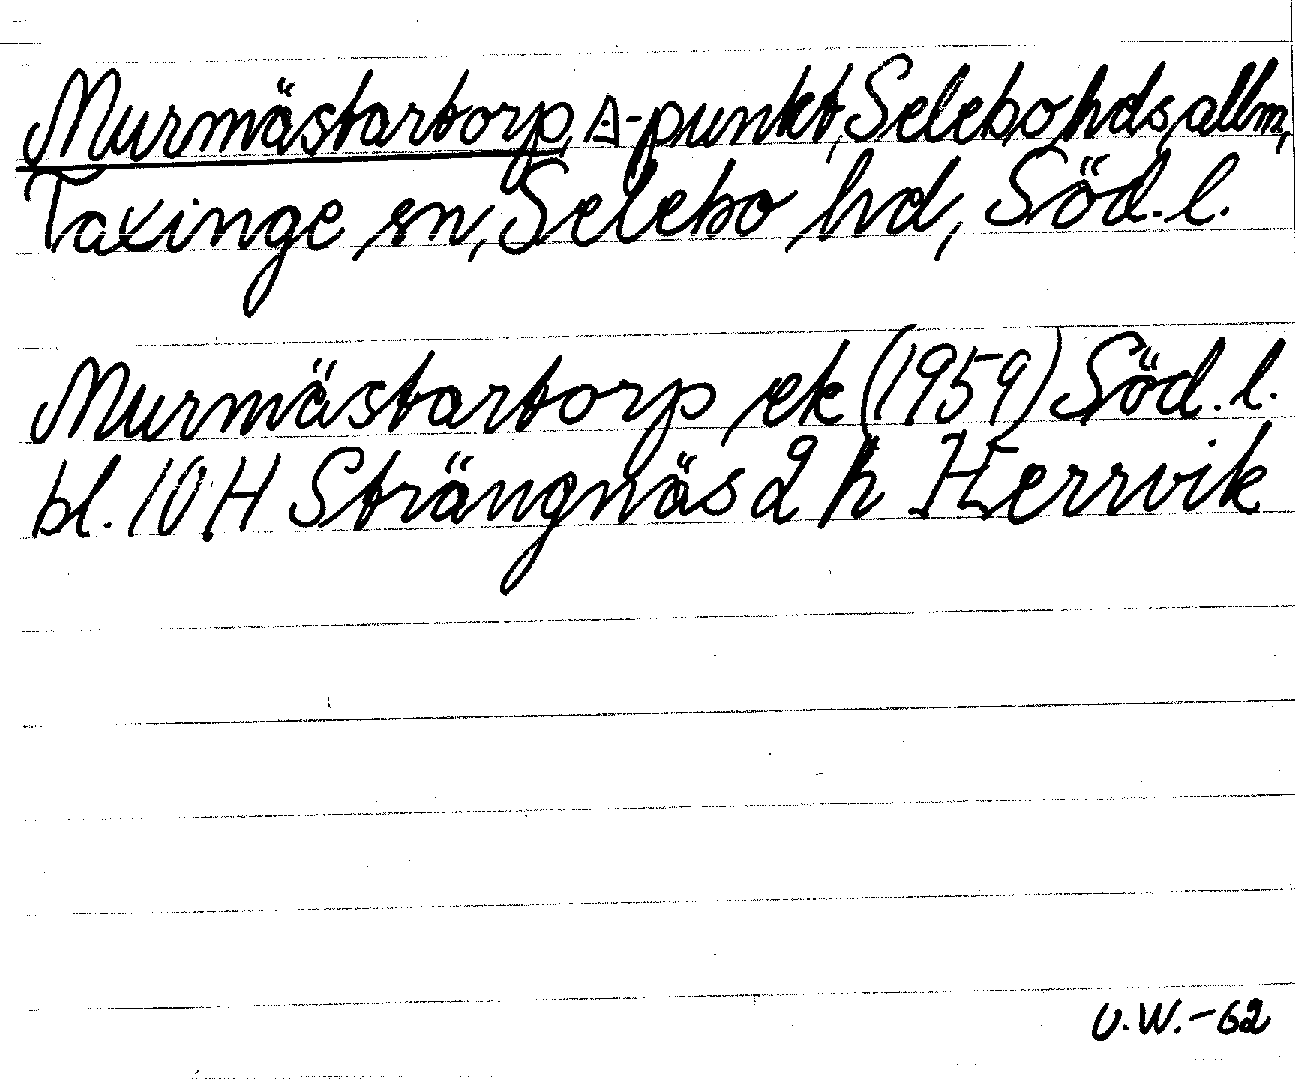 Murmästartorp, ∆-punkt, Selebo hds allm,
Taxinge sn, Selebo hd, Söd. l.
Murmästartorp ek (1959) Söd. l.
bl. 10 H Strängnäs 2 h Herrvik
U.W.-62